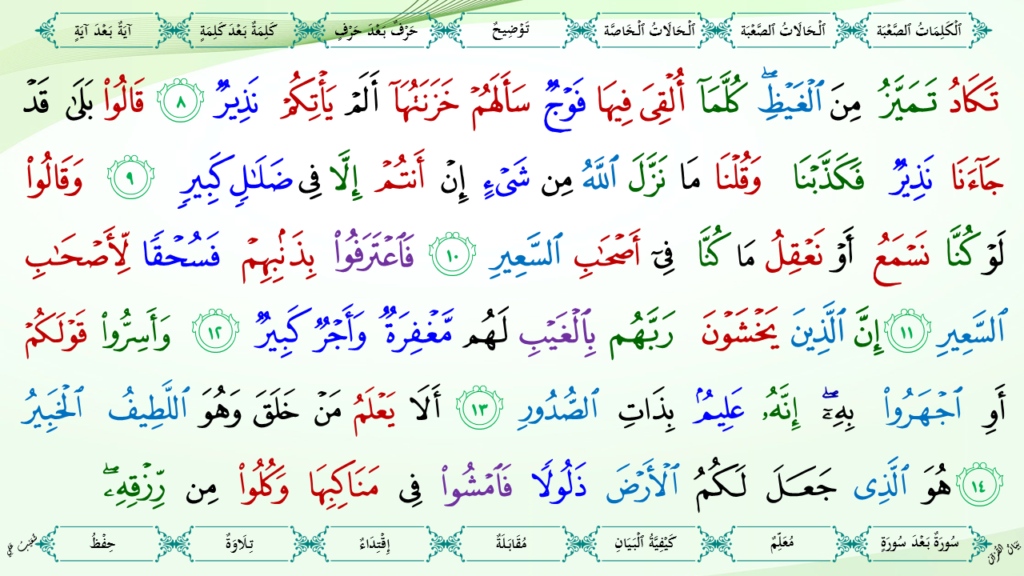 اَلْكَلِمَاتُ الصَّعْبَة اَلْحَالَاتُ الصَّعْبَة اَلْحَالَاتُ الْخَاصَّة تَوْضِيحٌ حَرْفٌ بَعْدَ حَرْفٍ كَلِمَةٌ بَعْدَ كَلِمَةٍ آيَةٌ بَعْدَ آيَةٍ
تَكَادُ تَمَيَّزُ مِنَ ٱلْغَيْظِۖ كُلَّمَآ أُلْقِىَ فِيهَا فَوْجٌ سَأَلَهُمْ خَزَنَتُهَآ أَلَمْ يَأْتِكُمْ نَذِيرٌ ٨ قَالُوا۟ بَلَىٰ قَدْ
جَآءَنَا نَذِيرٌ فَكَذَّبْنَا وَقُلْنَا مَا نَزَّلَ ٱللَّهُ مِن شَىْءٍ إِنْ أَنتُمْ إِلَّا فِى ضَلَـٰلٍ كَبِيرٍ ٩ وَقَالُوا۟
لَوْ كُنَّا نَسْمَعُ أَوْ نَعْقِلُ مَا كُنَّا فِىٓ أَصْحَـٰبِ ٱلسَّعِيرِ ١٠ فَٱعْتَرَفُوا۟ بِذَنۢبِهِمْ فَسُحْقًا لِّأَصْحَـٰبِ
ٱلسَّعِيرِ ١١ إِنَّ ٱلَّذِينَ يَخْشَوْنَ رَبَّهُم بِٱلْغَيْبِ لَهُم مَّغْفِرَةٌ وَأَجْرٌ كَبِيرٌ ١٢ وَأَسِرُّوا۟ قَوْلَكُمْ
أَوِ ٱجْهَرُوا۟ بِهِۦٓۖ إِنَّهُۥ عَلِيمٌۢ بِذَاتِ ٱلصُّدُورِ ١٣ أَلَا يَعْلَمُ مَنْ خَلَقَ وَهُوَ ٱللَّطِيفُ ٱلْخَبِيرُ
١٤ هُوَ ٱلَّذِى جَعَلَ لَكُمُ ٱلْأَرْضَ ذَلُولًا فَٱمْشُوا۟ فِى مَنَاكِبِهَا وَكُلُوا۟ مِن رِّزْقِهِۦۖ
سُورَةٌ بَعْدَ سُورَةٍ مُعَلِّمٌ كَيْفِيَّةُ الْبَيَانِ مُقَابَلَةٌ إِقْتِدَاءٌ تِلَاوَةٌ حِفْظٌ
بَيَانُ الْقُرْآن